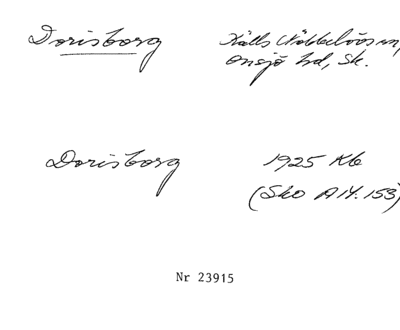 Dorisborg Källs Nöbbelövs sn,
Onsjö hd, Sk.
Dorisborg 1925 Kb
(Sko A14:153)
Nr 23915